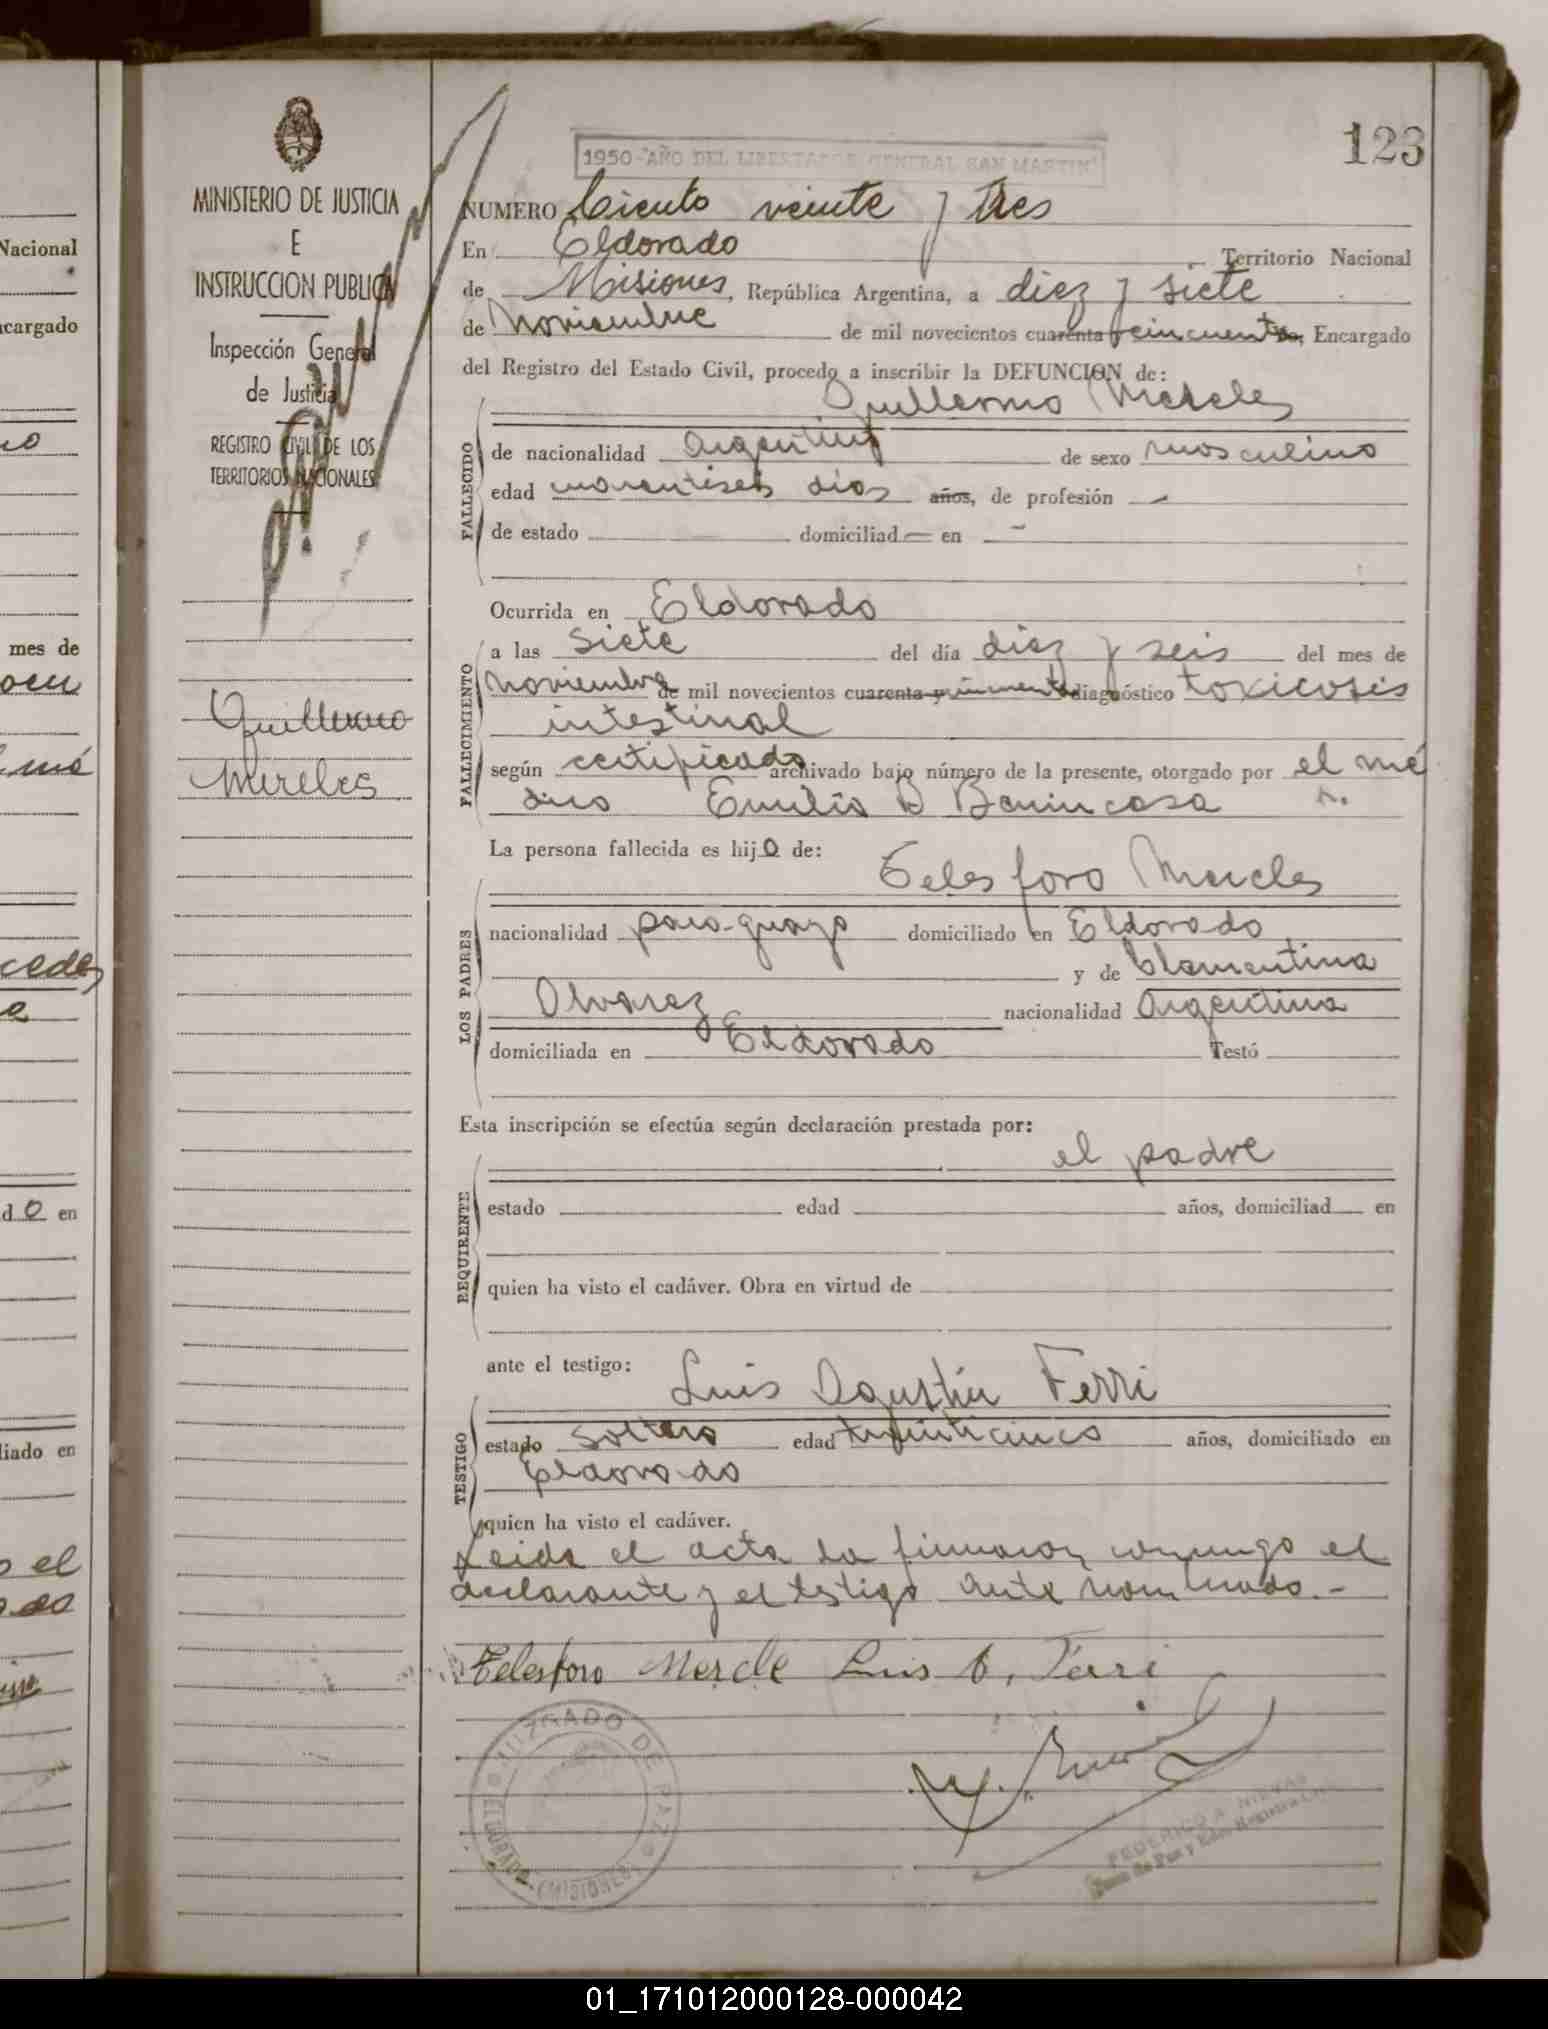 123
1950-"AÑO DEL LIBERTADOR GENERAL SAN MARTIN"
MINISTERIO DE JUSTICIA
E
INSTRUCCION PUBLICA
Inspección General
de Justicia
REGISTRO CIVIL DE LOS
TERRITORIOS NACIONALES
Guillermo
Mereles
NUMERO Ciento veinte y tres
En Eldorado Territorio Nacional
de Misiones, República Argentina, a diez y siete
de Noviembre de mil novecientos cuarenta y cincuenta Encargado
del Registro del Estado Civil, procedo a inscribir la DEFUNCION de:
Guillermo Mereles
FALLECIDO
de nacionalidad argentina de sexo masculino
edad cuarentiseis dias años, de profesión -
de estado domiciliad en -
Ocurrida en Eldorado
FALLECIMIENTO
a las siete del día diez y seis del mes de
Noviembre de mil novecientos cuarenta y cincuenta diagnóstico toxicosis
intestinal
según certificado archivado bajo número de la presente, otorgado por el mé
dico Emilio B Benincasa
La persona fallecida es hijo de:
Telesforo Mereles
LOS PADRES
nacionalidad paraguayo domiciliado en Eldorado
y de Clementina
Alvarez nacionalidad Argentina
domiciliada en Eldorado Testó
Esta inscripción se efectúa según declaración prestada por:
el padre
REQUIRENTE
estado edad años, domiciliad en
quien ha visto el cadáver. Obra en virtud de
ante el testigo: Luis Agustín Ferri
TESTIGO
estado soltero edad treinticinco años, domiciliado en
Eldorado
quien ha visto el cadáver.
Leida el acta la firmaron conmigo el
declarante y el testigo ante nombrado.-
Telesforo Merele Luis A. Ferri
JUZGADO DE PAZ
ELDORADO (MISIONES)
FEDERICO A. NIEVAS
Juez de Paz y Edo. Registro Civil
Nacional
ncargado
mes de
el
d o en
liado en
o el
01_171012000128-000042